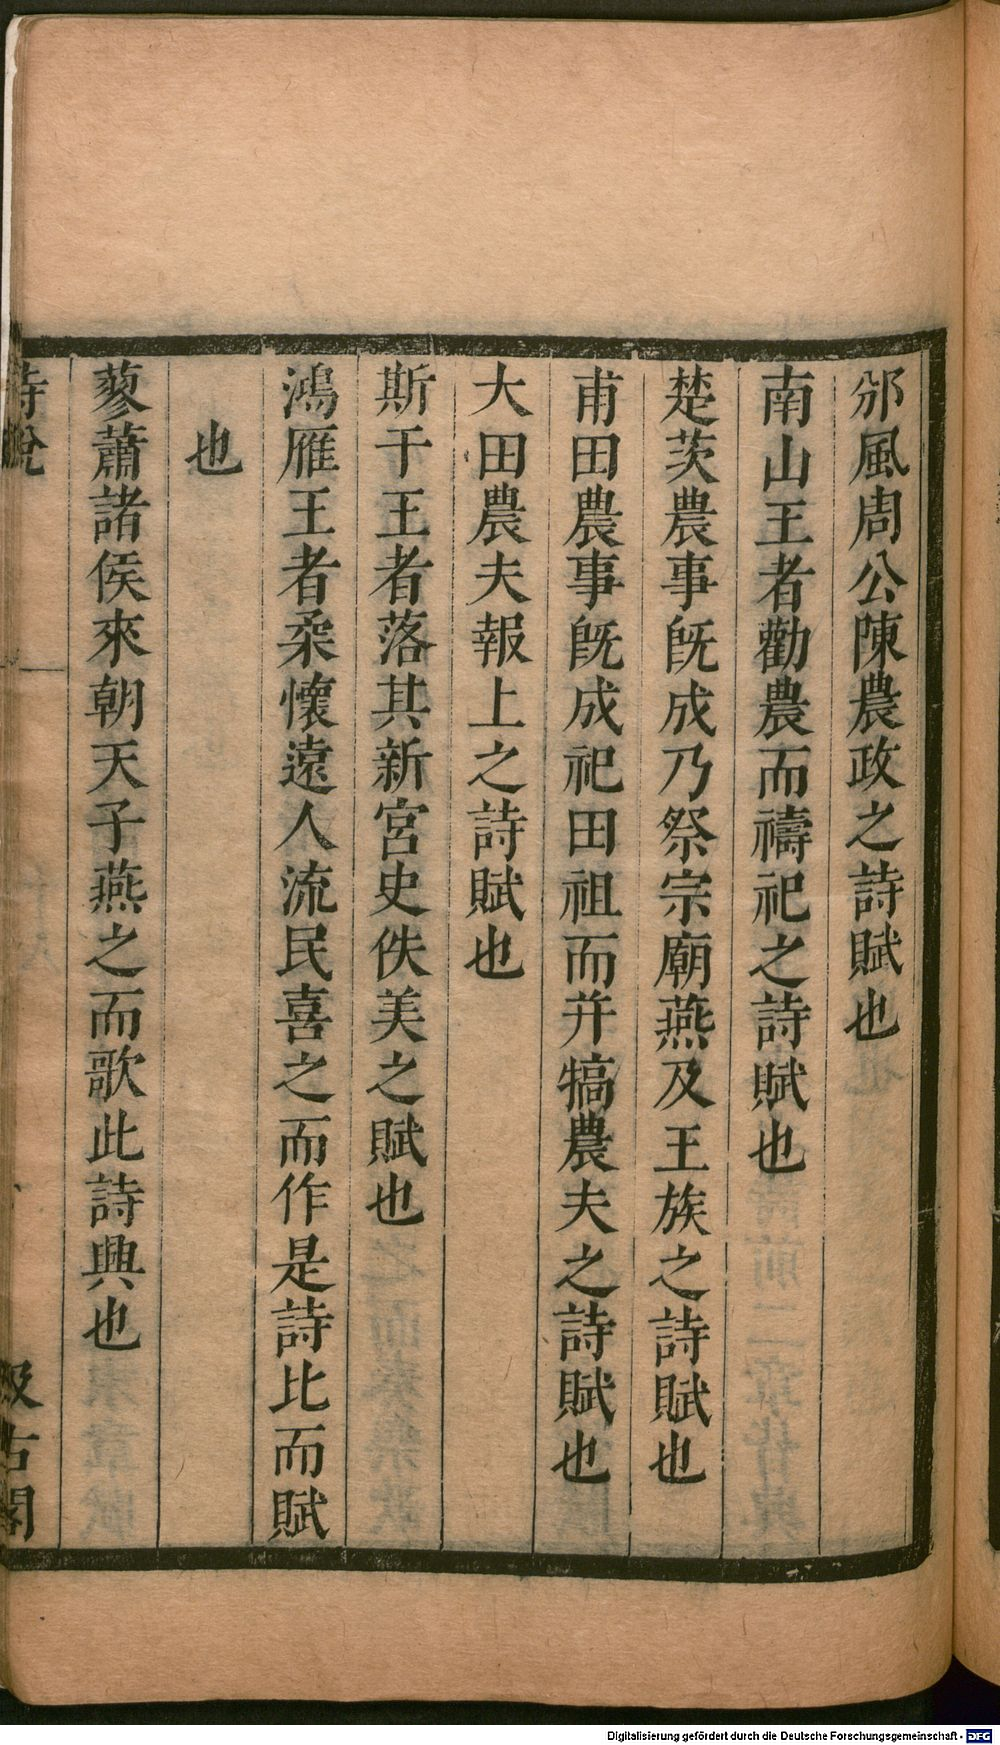 邠風周公陳農政之詩賦也
南山王者勸農而禱祀之詩賦也
楚茨農事旣成乃祭宗廟燕及王族之詩賦也
甫田農事旣成祀田祖而幷犒農夫之詩賦也
大田農夫報上之詩賦也
斯干王者落其新宮史佚美之賦也
鴻雁王者柔懷遠人流民喜之而作是詩比而賦
也
蓼蕭諸侯來朝天子燕之而歌此詩興也
詩說
汲古閣
Digitalisierung gefördert durch die Deutsche Forschungsgemeinschaft - DFG